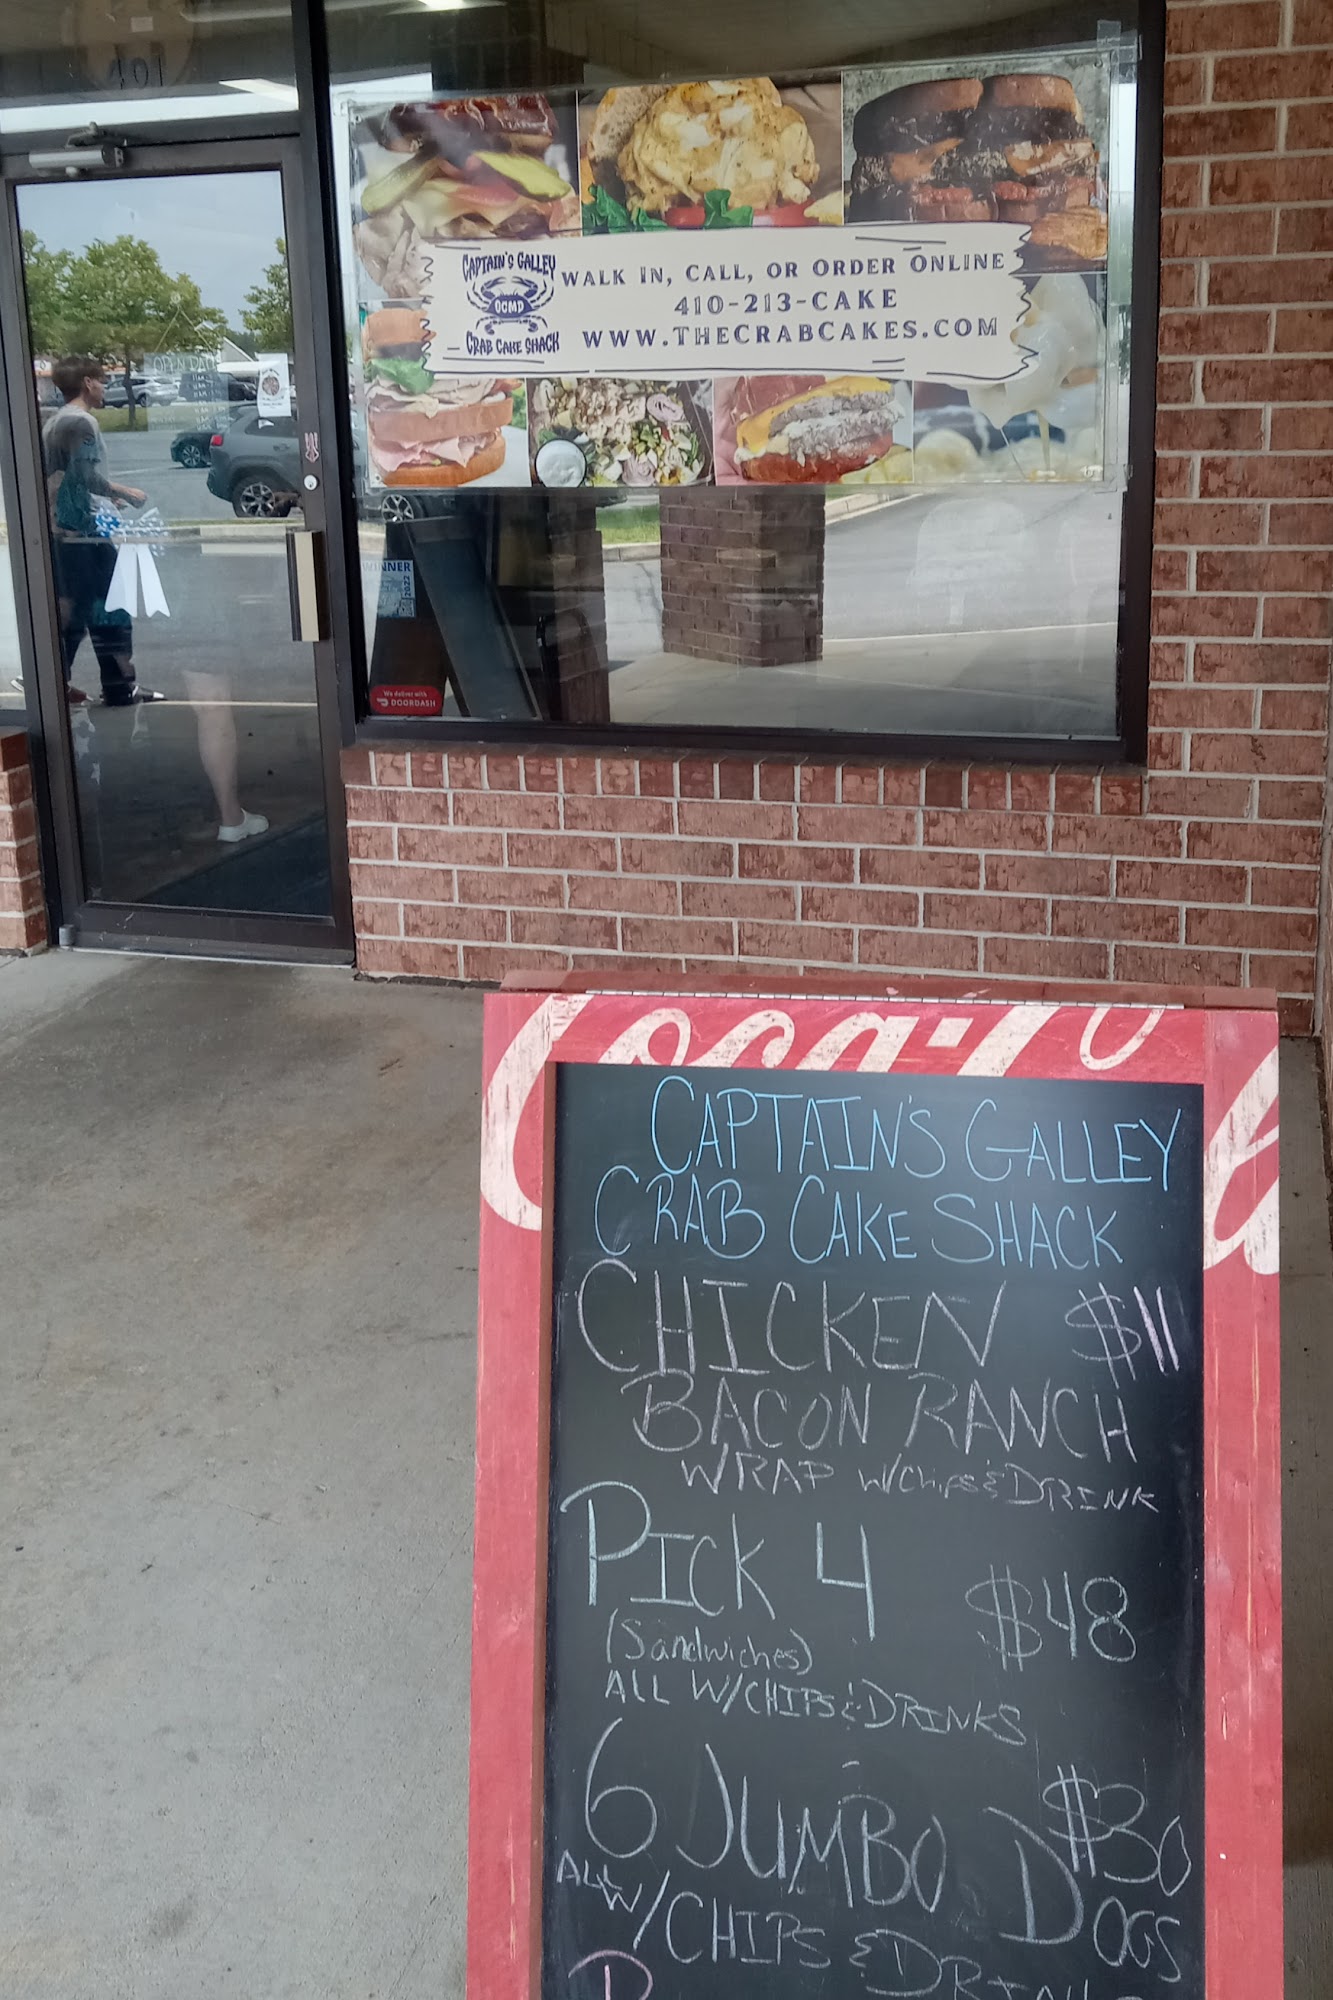 CAPTAIN'S GALLEY
OCMD
CRAB CAKE SHACK
WALK IN, CALL, OR ORDER ONLINE
410-213-CAKE
WWW.THECRABCAKES.COM
WINNER
2022
We deliver with
DOORDASH
Coca-Co
CAPTAIN'S GALLEY
CRAB CAKE SHACK
CHICKEN $11
BACON RANCH
WRAP W/Chips & DRINK
PICK 4 $48
(Sandwiches)
ALL W/CHIPS & DRINKS
6 JUMBO DOGS $30
ALL W/CHIPS & DRIN